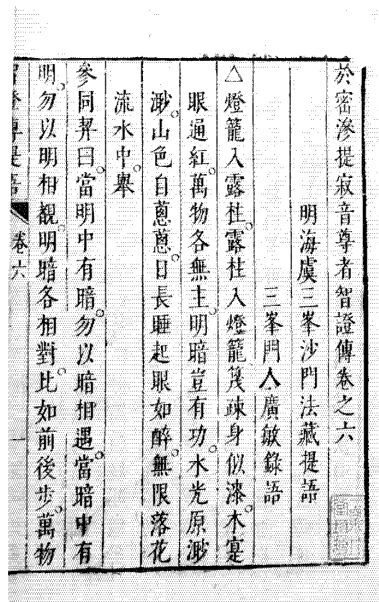 於密滲提寂音尊者智證傳卷之六
明海虞三峯沙門法藏提語
三峯門人廣敏錄語
△燈籠入露柱。露柱入燈籠。篾疎身似漆。木寔
眼通紅。萬物各無主。明暗豈有功。水光原渺
渺。山色自蔥蔥。日長睡起眼如醉。無限落花
流水中。舉
參同契曰。當明中有暗。勿以暗相遇。當暗中有
明。勿以明相覩。明暗各相對。比如前後步。萬物
智證傳提語 卷六 一